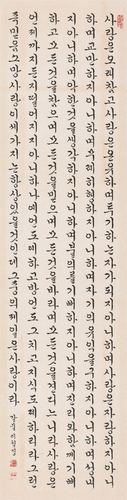 사랑은오래참고사랑은온유하며투기하는자가되지아니하며사랑은자랑하
지아니하며교만하지아니하며무례히행치아니하며자기의유익을구치아니하며성내
지아니하며악한것을생각지아니하며불의를기뻐하지아니하며진리와함께기뻐
하고모든것을참으며모든것을믿으며모든것을바라며모든것을견디느니라사랑은
언제까지든지떨어지지아니하나예언도폐하고방언도그치고지식도폐하리라그런
즉믿음소망사랑이세가지는항상있을것인데그중의제일은사랑이라 갈물 이철경